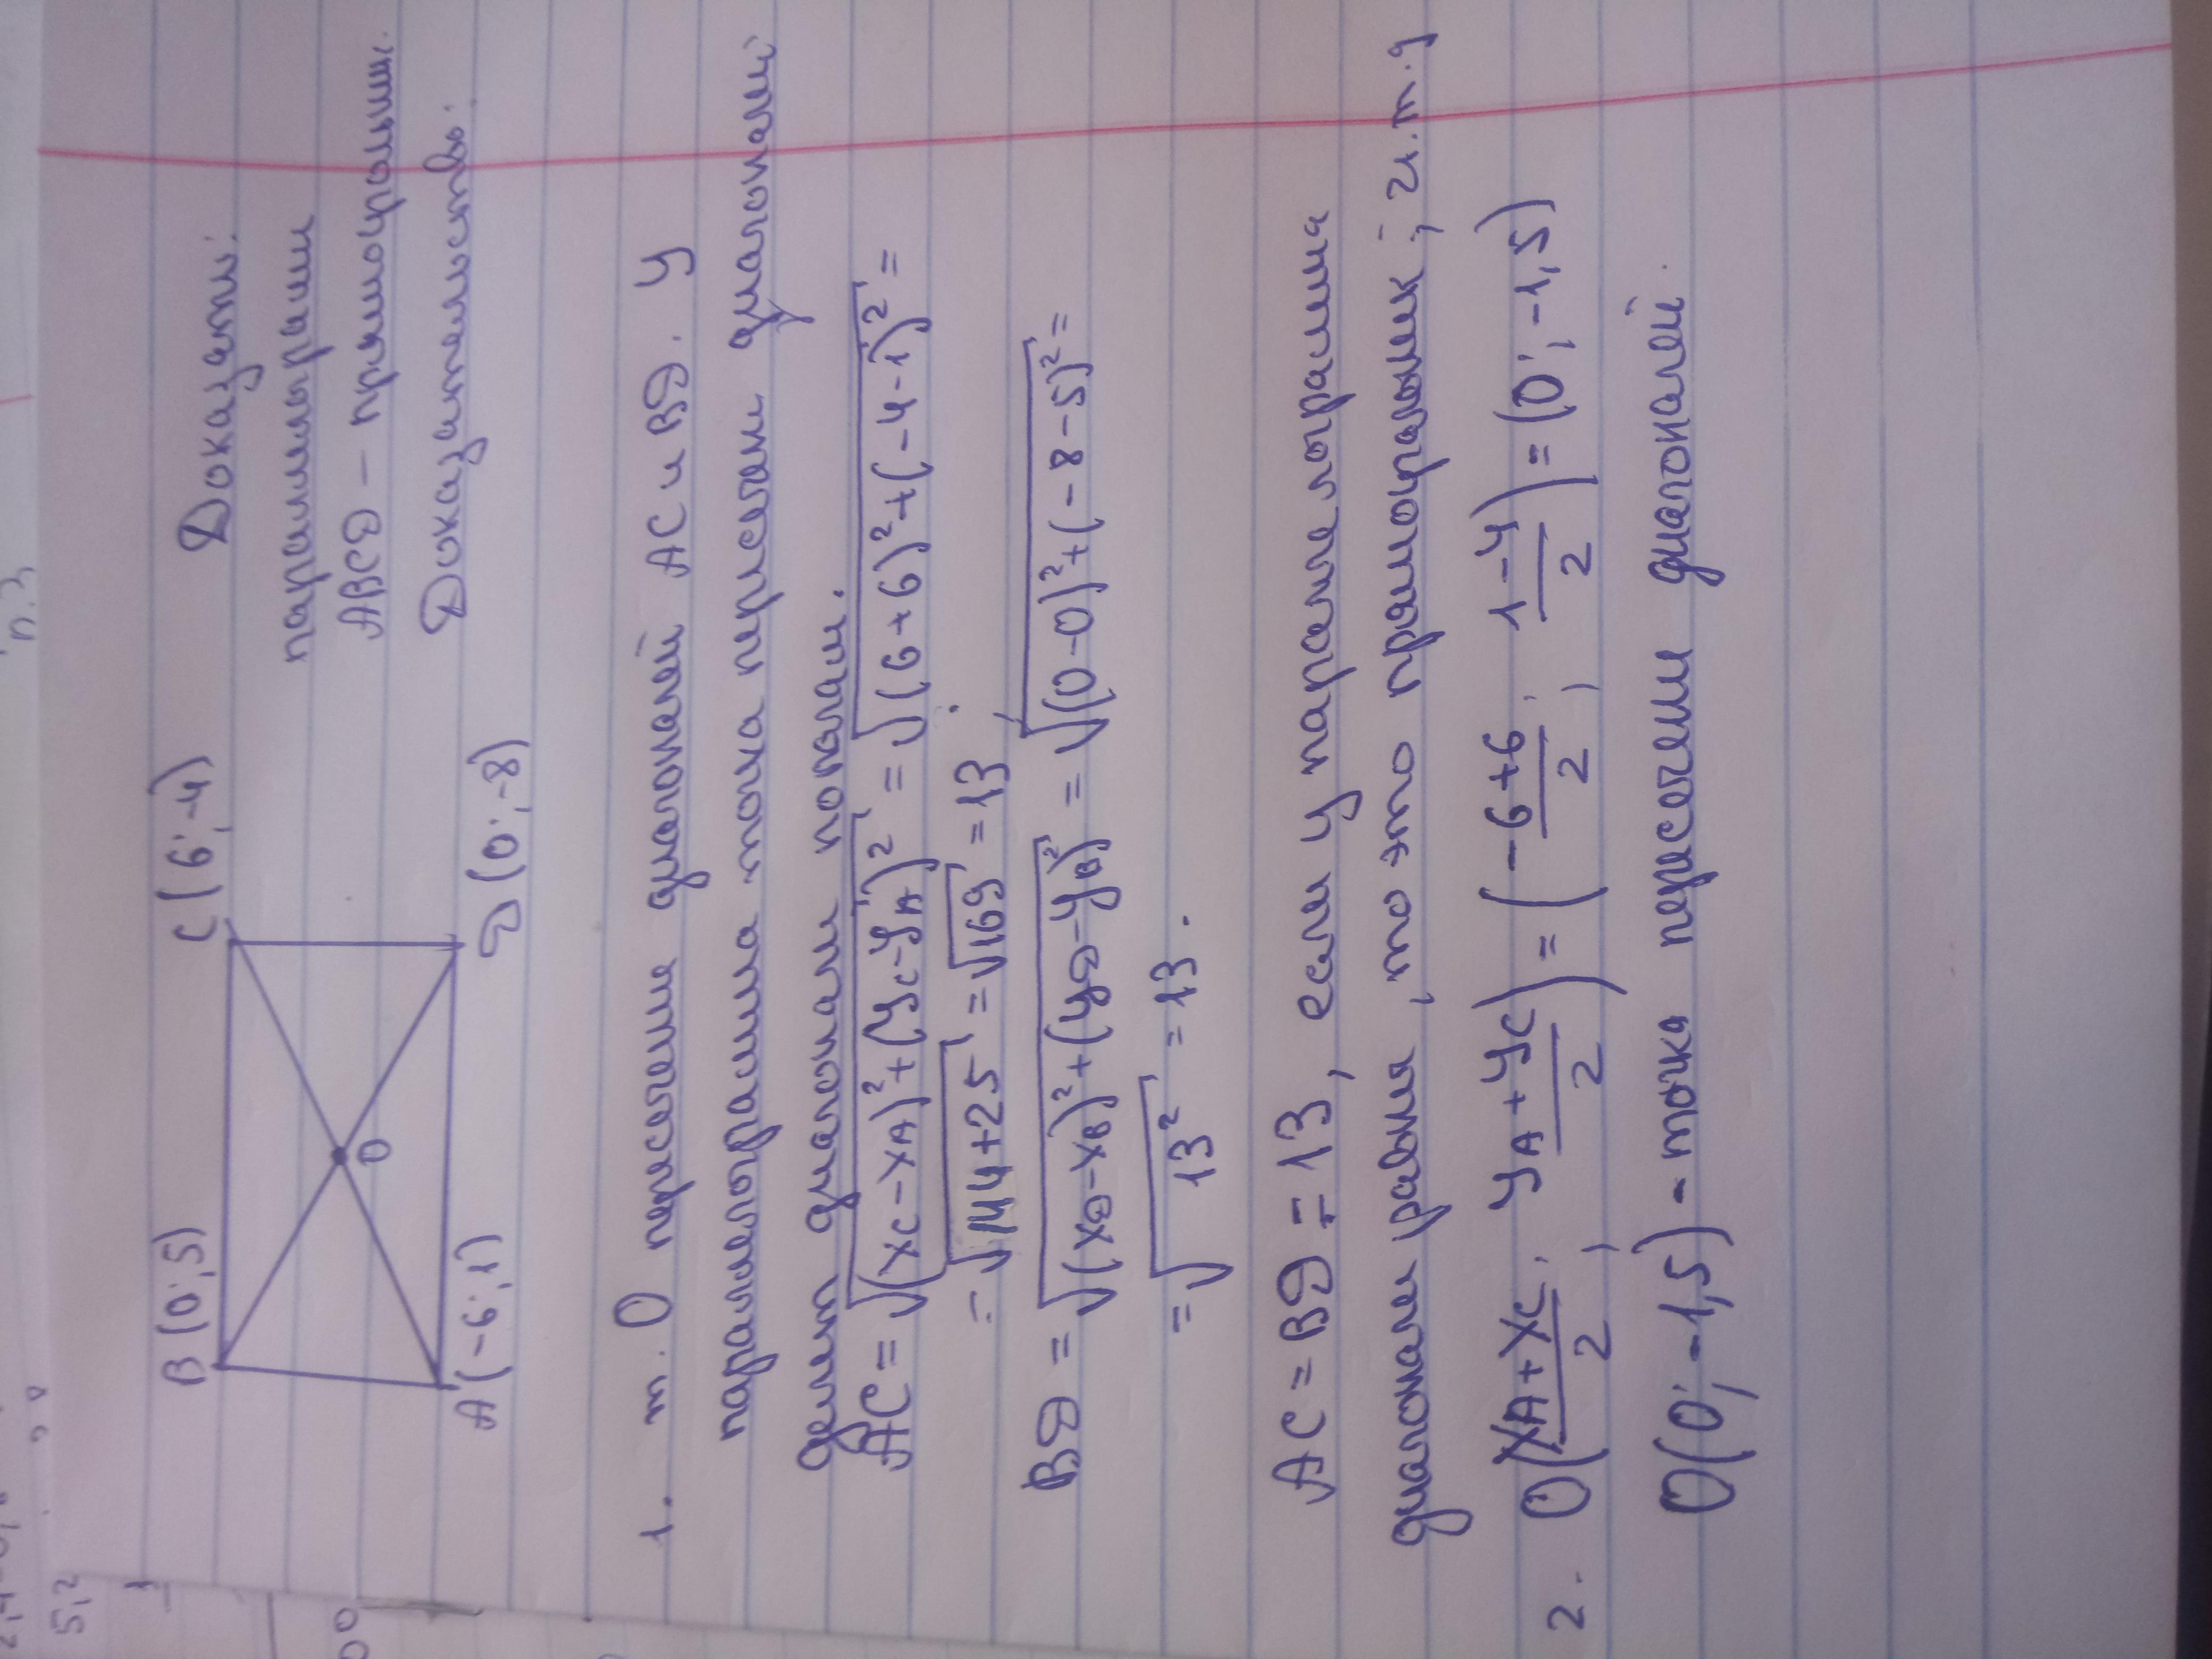 B (0; 5)
C (6; -4)
A (-6; 1)
D (0; -8)
O
Доказать:
параллелограмм
ABCD - прямоугольник.
Доказательство:
1. т. O пересечение диагоналей AC и BD. У
параллелограмма точка пересечени диагоналей
делит диагонали пополам.
AC = √(xC - xA)² + (yC - yA)² = √(6+6)² + (-4-1)² =
= √144+25 = √169 = 13.
BD = √(xD - xB)² + (yD - yB)² = √(0-0)² + (-8-5)² =
= √13² = 13.
AC = BD = 13, если у параллелограмма
диагонали равны, то это прямоугольник, ч.т.д
2. O(xA + xC / 2; yA + yC / 2) = (-6+6 / 2; 1-4 / 2) = (0; -1,5)
O(0; -1,5) - точка пересечени диагоналей.
5,2